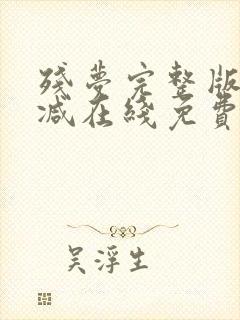 残夢完整版
减在綫免費
吴浮生